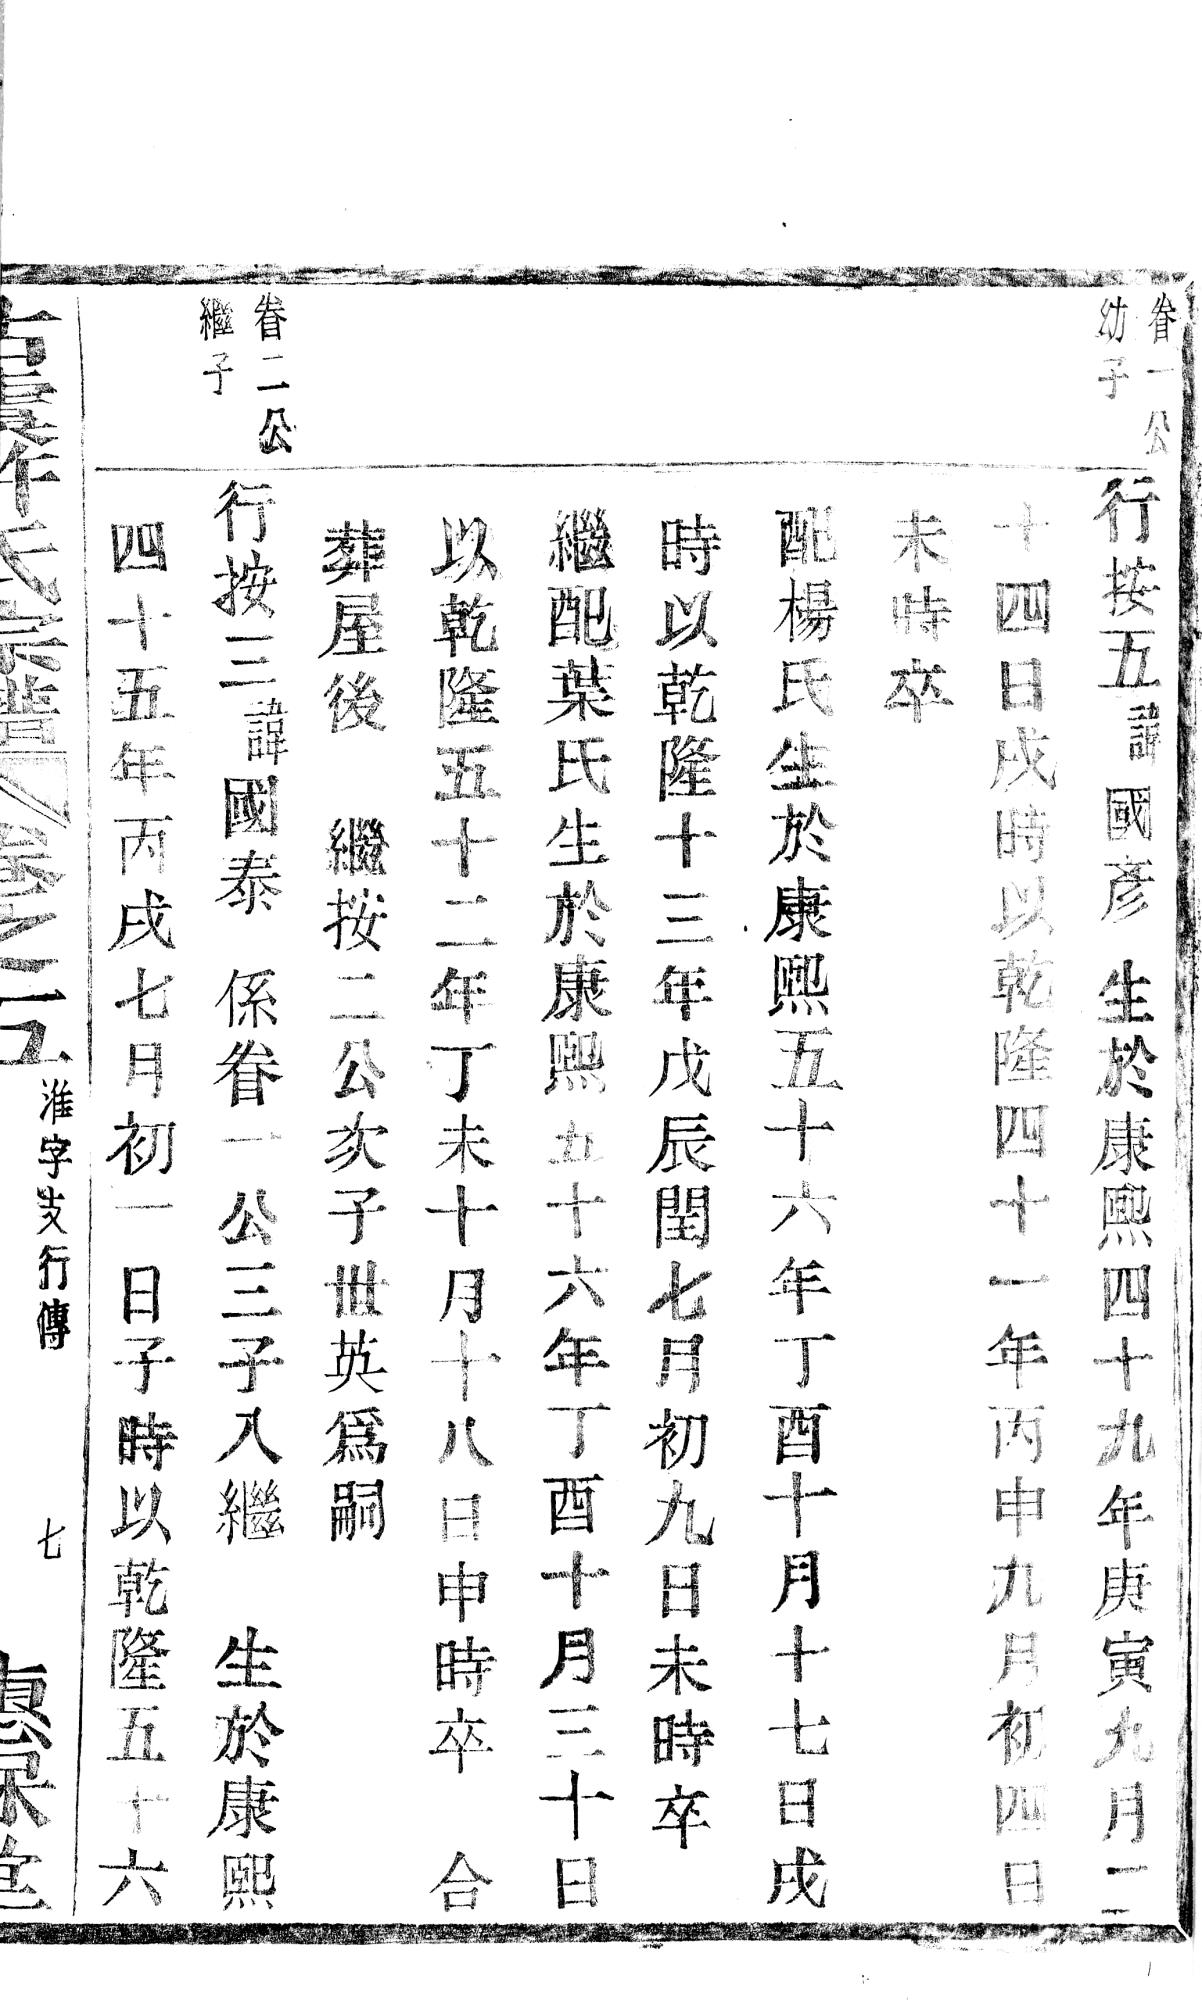 眷一公
幼子
行按五 諱 國彥 生於康熙四十九年庚寅九月二
十四日戌時以乾隆四十一年丙申九月初四日
未時卒
配楊氏生於康熙五十六年丁酉十月十七日戌
時以乾隆十三年戊辰閏七月初九日未時卒
繼配葉氏生於康熙五十六年丁酉十月三十日
以乾隆五十二年丁未十月十八日申時卒 合
葬屋後 繼按二公次子世英爲嗣
眷二公
繼子
行按三 諱國泰 係眷一公三子入繼 生於康熙
四十五年丙戌七月初一日子時以乾隆五十六
氏宗譜 卷之五 淮字支行傳 七